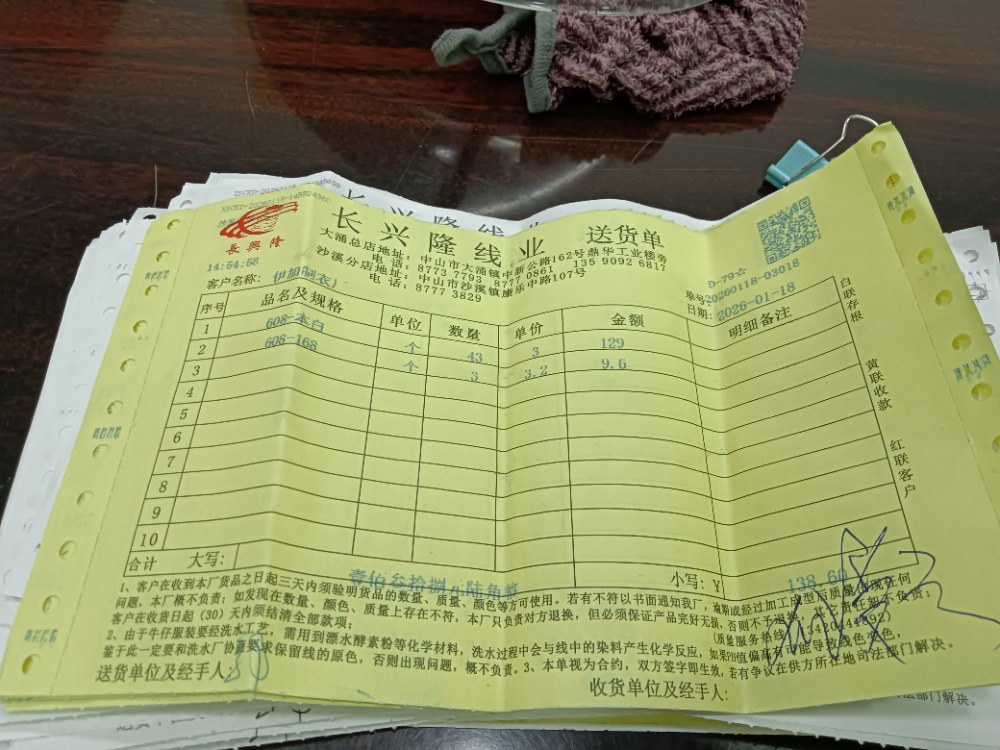 長興隆
长兴隆线业 送货单
大涌总店地址：中山市大涌镇中新公路162号鼎华工业楼旁
电话：8773 7793 8777 0861 135 9092 6817
沙溪分店地址：中山市沙溪镇康乐中路107号
电话：8777 3829
14:54:58
D-79☆
客户名称：伊加制衣厂
单号：20260118-03018
日期：2026-01-18
序号 品名及规格 单位 数量 单价 金额 明细备注
1 608-本白 个 43 3 129
2 608-168 个 3 3.2 9.6
3
4
5
6
7
8
9
10
合计 大写： 壹佰叁拾捌元陆角整 小写：¥ 138.60
白联存根
黄联收款
红联客户
1、客户在收到本厂货品之日起三天内须验明货品的数量、质量、颜色等方可使用。若有不符以书面通知我厂，逾期或经过加工成型后质量有任何
问题，本厂概不负责；如发现在数量、颜色、质量上存在不符，本厂只负责对方退换，但必须保证产品完好无损，否则不予退换，其它责任如不负责；
客户在收货日起（30）天内须结清全部款项；
（质量服务热线：13420444892）
2、由于牛仔服装要经洗水工艺，需用到漂水酵素粉等化学材料，洗水过程中会与线中的染料产生化学反应，如果PH值偏高有可能导致线色变色，
鉴于此一定要和洗水厂协商要求保留线的原色，否则出现问题，概不负责。3、本单视为合约，双方签字即生效，若有争议在供方所在地司法部门解决。
送货单位及经手人：
收货单位及经手人：